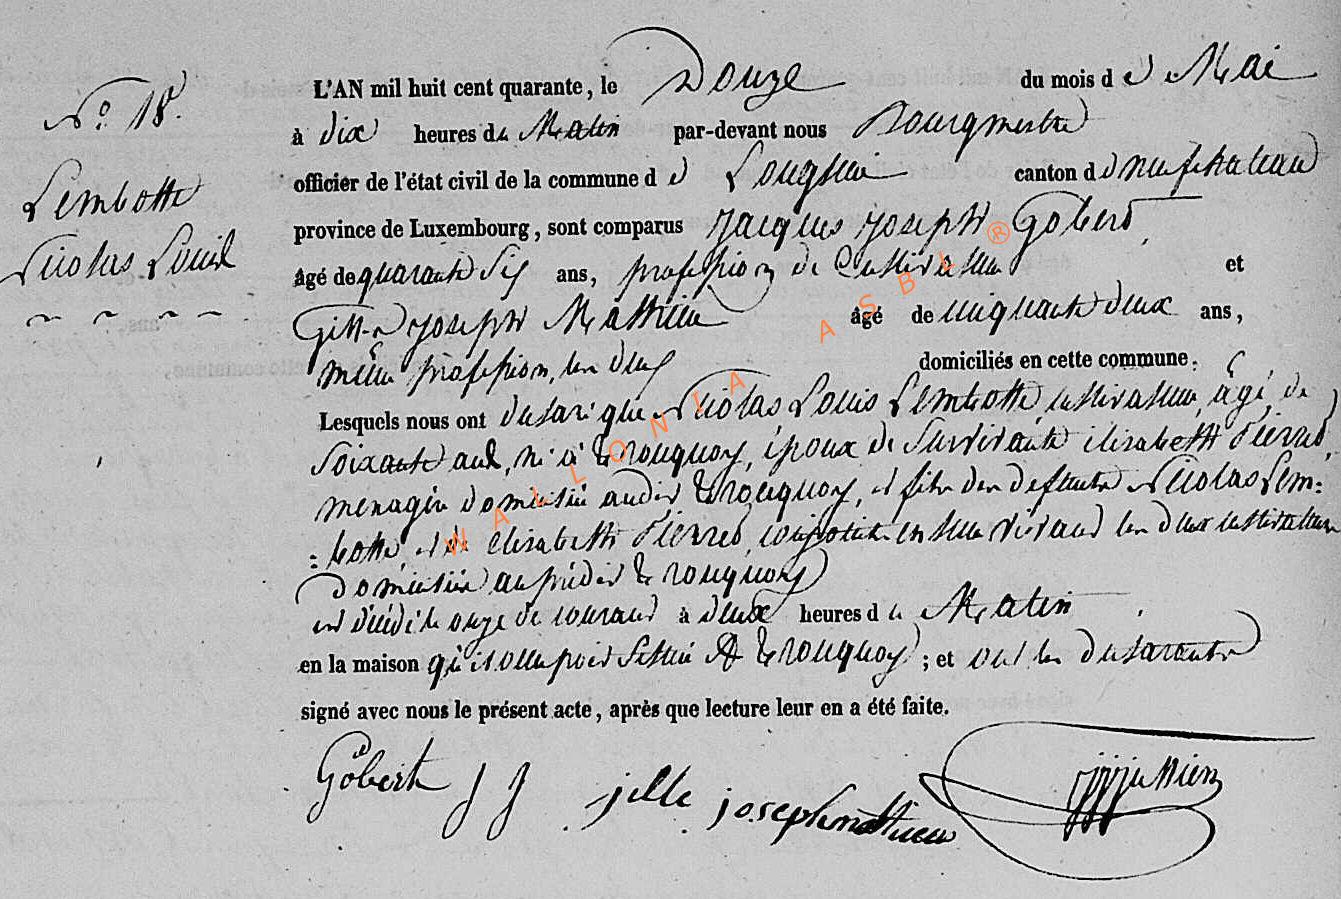 N.° 18.
Lembotte
Nicolas Louis
L'AN mil huit cent quarante, le Douze du mois d e Mai
à dix heures du Matin par-devant nous Bourgmestre
officier de l'état civil de la commune d e Longlier canton d e neufchateau
province de Luxembourg, sont comparus Jacques Joseph Gobert
âgé de quarante six ans, profession de Cultivateur et
Joseph Mathieu âgé de cinquante deux ans,
même profession, les deux domiciliés en cette commune.
Lesquels nous ont declaré que Nicolas Louis Lembotte cultivateur, âgé de
soixante ans, né à tronquoy, époux de survivante élisabeth Pierret
menagère domiciliée audit tronquoy, et fils des defunts Nicolas Lem:
:botte, et de élisabeth Pierret, conjoints en leur vivant les deux cultivateurs
Domiciliés au prédit tronquoy
est décédé le onze de courant à deux heures d u Matin
en la maison qu'il occupoit à tronquoy ; et ont les declarants
signé avec nous le présent acte, après que lecture leur en a été faite.
Gobert J J jille joseph mathieu
WALLONIA ASBL ®